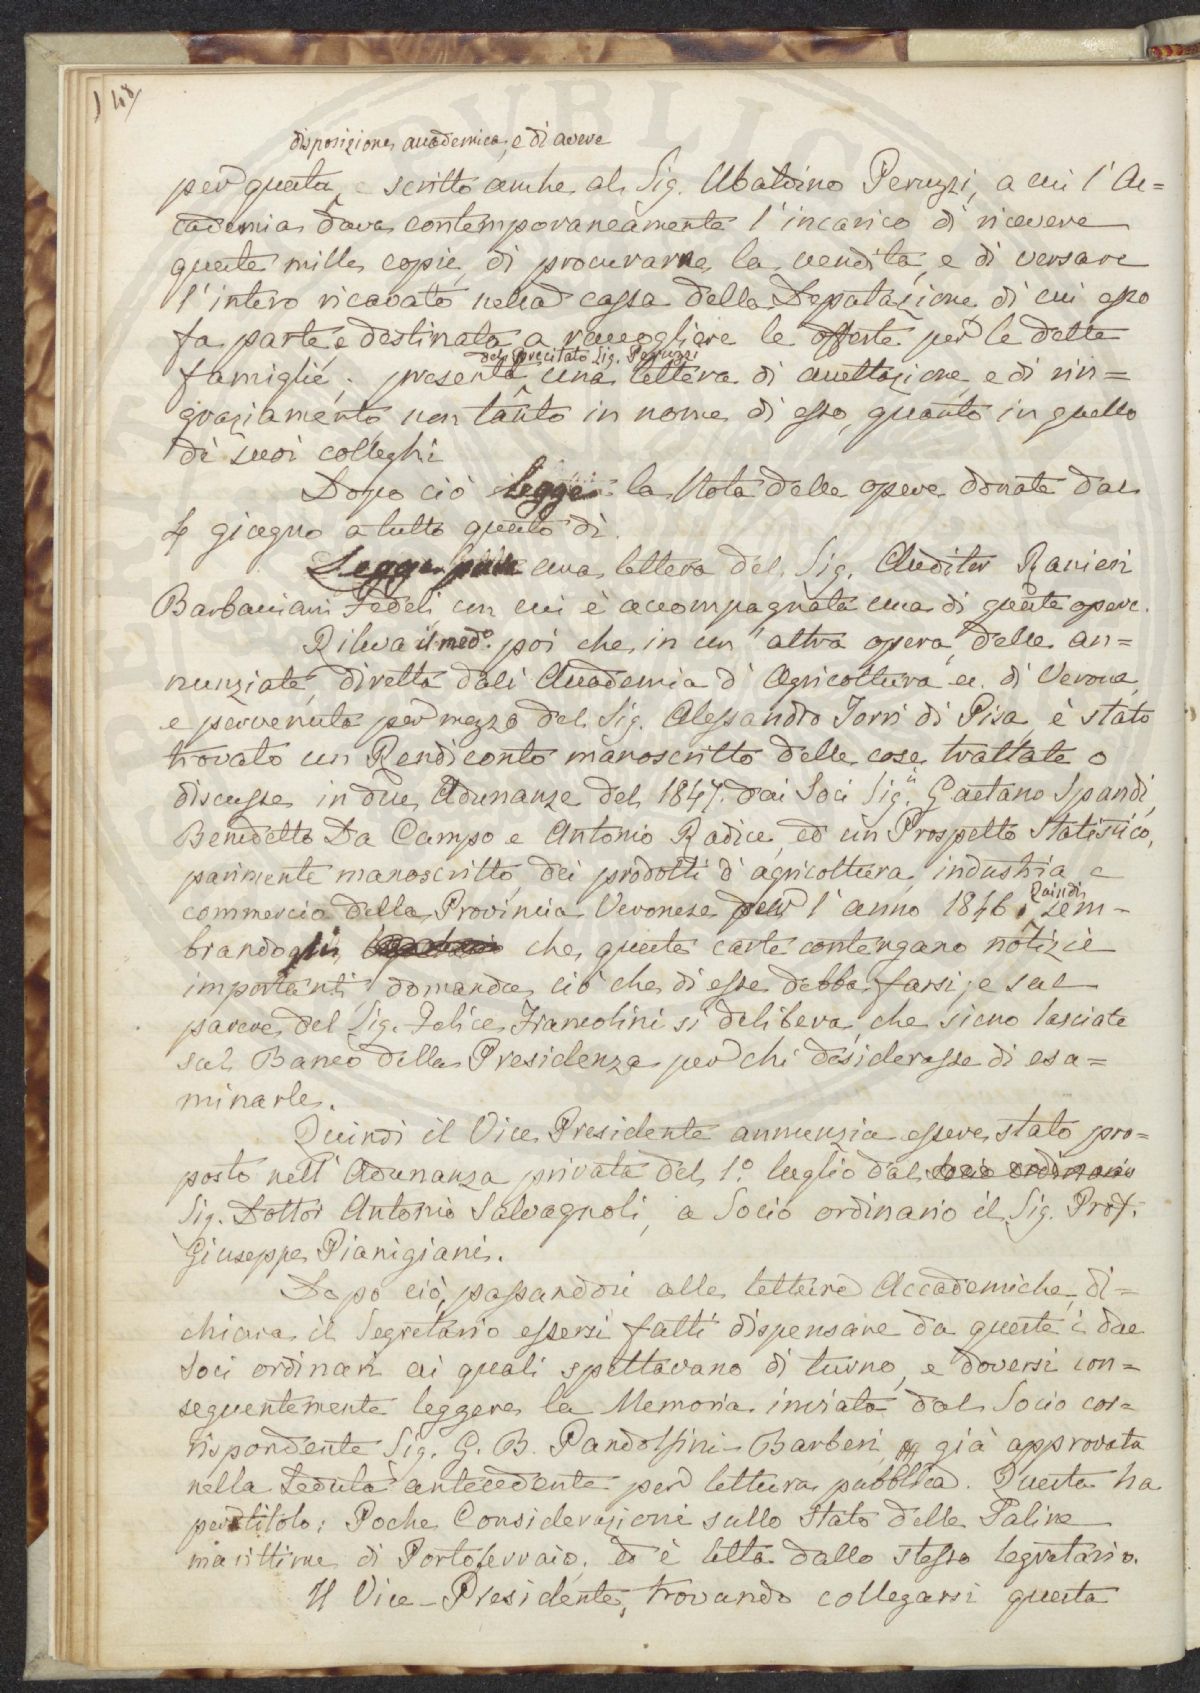 148
disposizione accademica, e di avere
per questa scritto anche al Sig. Ubaldino Peruzzi, a cui l'Ac=
cademia dava contemporaneamente l'incarico di ricevere
queste mille copie, di procurarne la vendita, e di versare
l'intero ricavato nella cassa della Deputazione, di cui esso
fa parte, e destinata a raccogliere le offerte per le dette
del precitato Sig. Peruzzi
famiglie; presenta una lettera di accettazione, e di rin=
graziamento non tanto in nome di esso, quanto in quello
di suoi colleghi
Dopo ciò legge la Nota delle opere donate dal
4 giugno a tutto questo dì.
Legge pure una lettera del Sig. Auditor Ranieri
Barbaciani Fedeli, con cui è accompagnata una di queste opere.
Rileva il med.º poi che in un'altra opera, delle an=
nunziate, diretta dall'Accademia d'Agricoltura ec. di Verona,
e pervenuta per mezzo del Sig. Alessandro Torri di Pisa, è stato
trovato un Rendiconto manoscritto delle cose trattate o
discusse in due Adunanze del 1847. dai Soci Sig.ri Gaetano Spandri,
Benedetto Da Campo e Antonio Radice, ed un Prospetto Statistico,
parimente manoscritto, dei prodotti d'agricoltura, industria e
commercio della Provincia Veronese per l'anno 1846. Quindi sem-
brandogli che queste carte contengano notizie
importanti domanda ciò che di esse debba farsi; e sul
parere del Sig. Felice Francolini si delibera, che sieno lasciate
sul Banco della Presidenza per chi desiderasse di esa=
minarle.
Quindi il Vice Presidente annunzia essere stato pro=
posto nell'Adunanza privata del 1.º luglio dal socio ordinario
Sig. Dottor Antonio Salvagnoli, a Socio ordinario il Sig. Prof.
Giuseppe Pianigiani.
Dopo ciò, passandosi alle letture Accademiche, di=
chiara il Segretario essersi fatti dispensare da queste i due
Soci ordinari ai quali spettavano di turno, e doversi con=
seguentemente leggere la Memoria inviata dal Socio cor=
rispondente Sig. G. B. Pandolfini-Barberi, già approvata
nella Seduta antecedente per lettura pubblica. Questa ha
per titolo: Poche Considerazioni sullo stato delle Saline
marittime di Portoferraio, ed è letta dallo stesso Segretario.
Il Vice-Presidente, trovando collegarsi questa